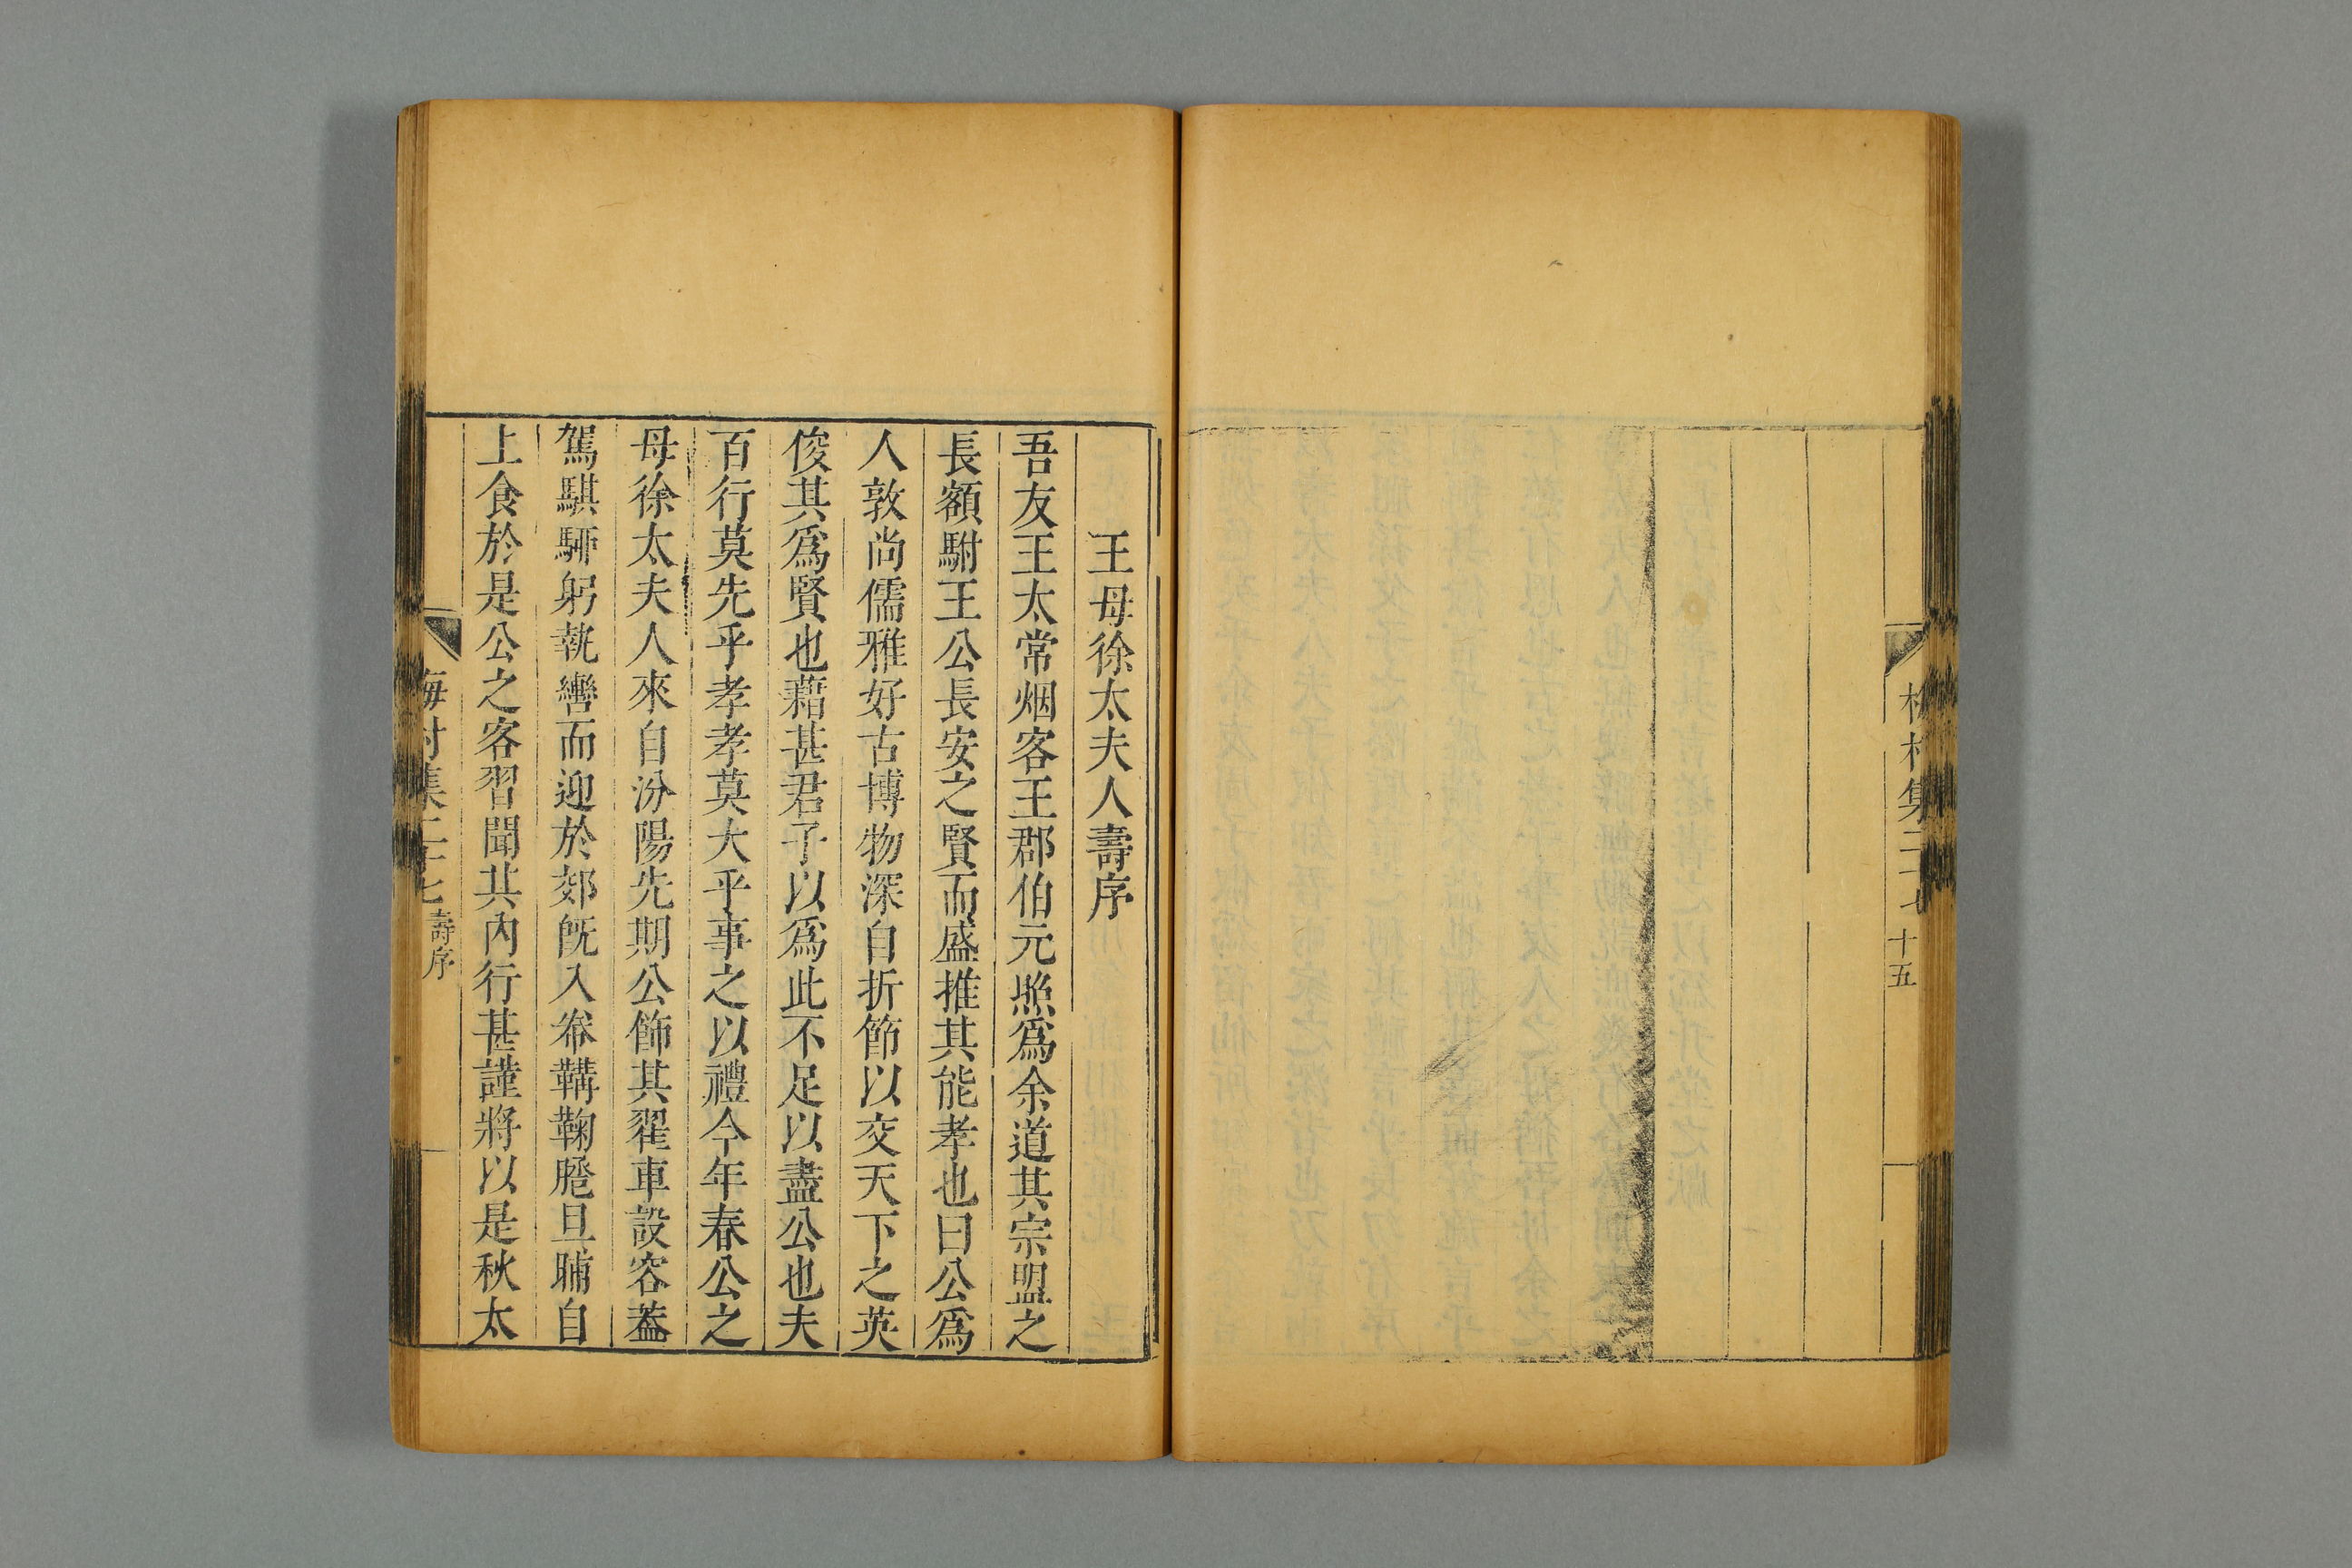 梅村集二十七
十五
王母徐太夫人壽序
吾友王太常烟客王郡伯元㷖爲余道其宗盟之
長額駙王公長安之賢而盛推其能孝也曰公爲
人敦尚儒雅好古博物深自折節以交天下之英
俊其爲賢也藉甚君子以爲此不足以盡公也夫
百行莫先乎孝孝莫大乎事之以禮今年春公之
母徐太夫人來自汾陽先期公飾其翟車設容蓋
駕騏駵躬執轡而迎於郊旣入帣鞲鞠䠆旦晡自
上食於是公之客習聞其內行甚謹將以是秋太
梅村集二十七
壽序